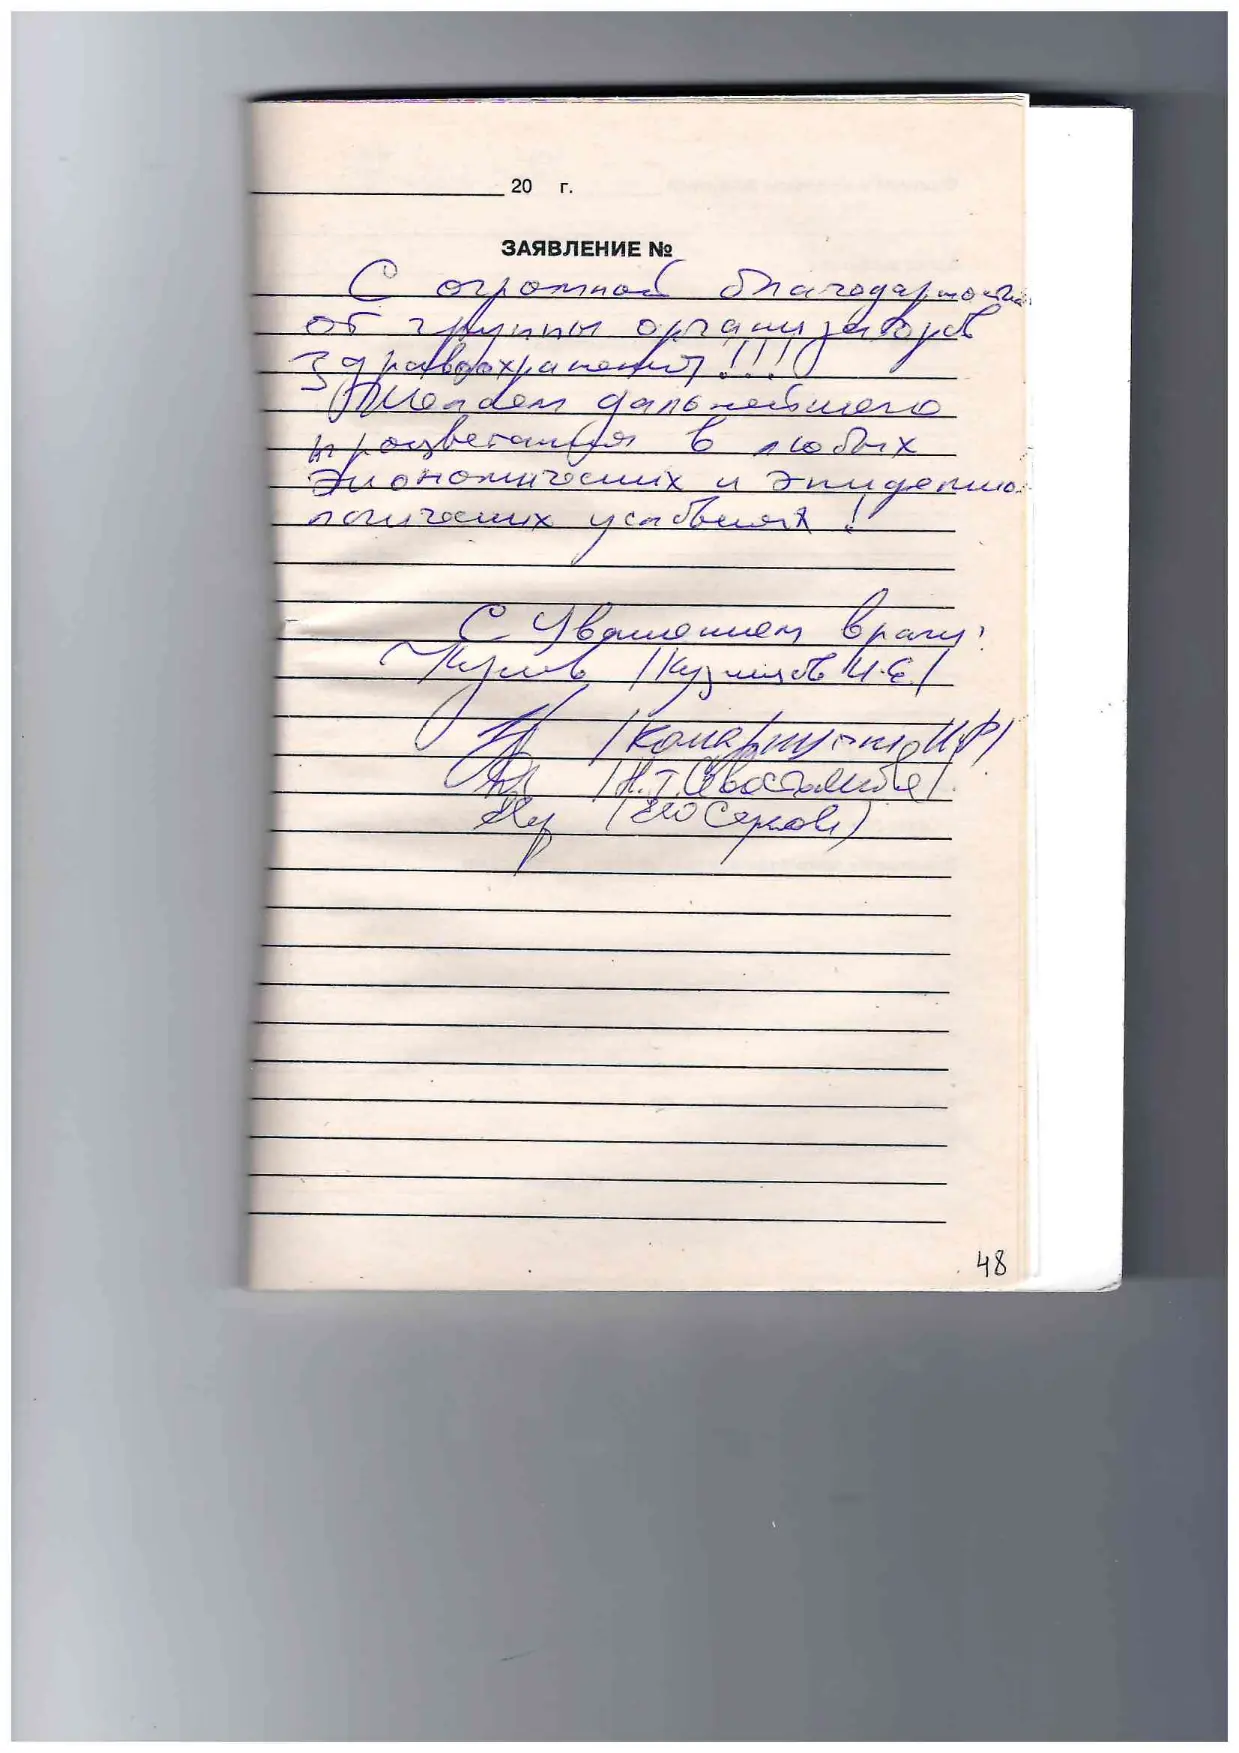 20 г.
ЗАЯВЛЕНИЕ №
С огромной благодарностью
от группы организаторов
здравоохранения!!!
Желаем дальнейшего
процветания в любых
экономических и эпидемио-
логических условиях!
С Уважением врачи:
/Кузнецов И.Е./
/
/Н.Т.
(
48